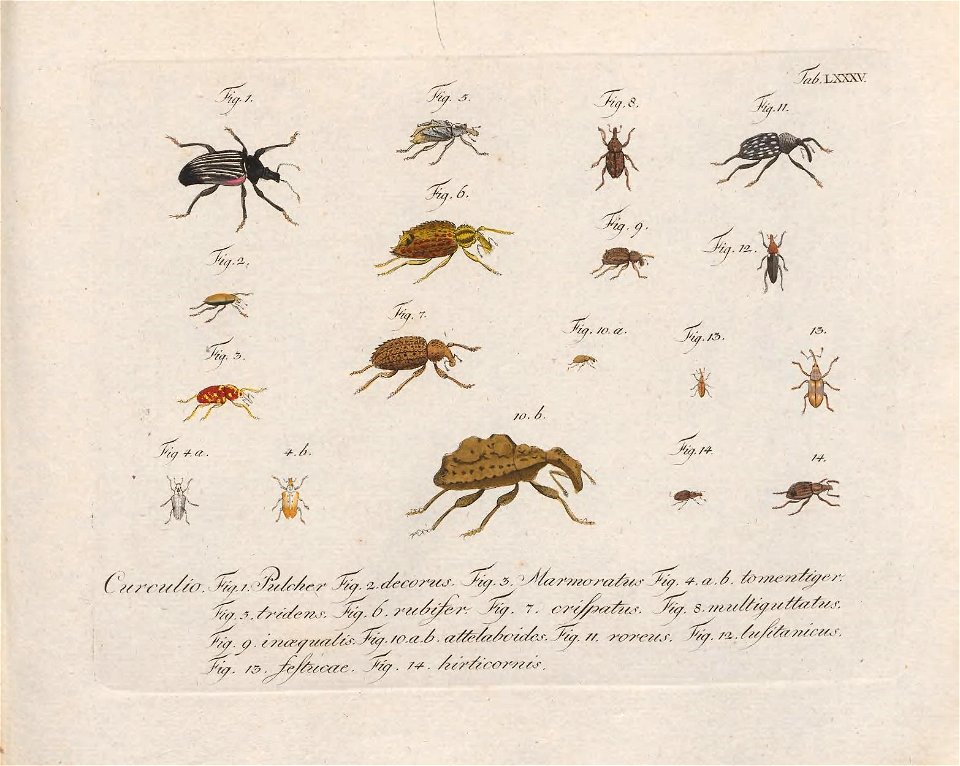 Tab. LXXXV.
Fig. 1.
Fig. 5.
Fig. 8.
Fig. 11.
Fig. 6.
Fig. 9.
Fig. 12.
Fig. 2.
Fig. 7.
Fig. 10. a.
Fig. 13.
13.
Fig. 3.
10. b.
Fig. 4. a.
4. b.
Fig. 14
14.
Curculio. Fig. 1. Pulcher Fig. 2. decorus. Fig. 3. Marmoratus Fig. 4. a. b. tomentiger.
Fig. 5. tridens. Fig. 6. rubifer. Fig. 7. criſpatus. Fig. 8. multiguttatus.
Fig. 9. inæqualis. Fig. 10. a.b. attelaboides. Fig. 11. roreus. Fig. 12. luſitanicus.
Fig. 13. feſtucae. Fig. 14. hirticornis.